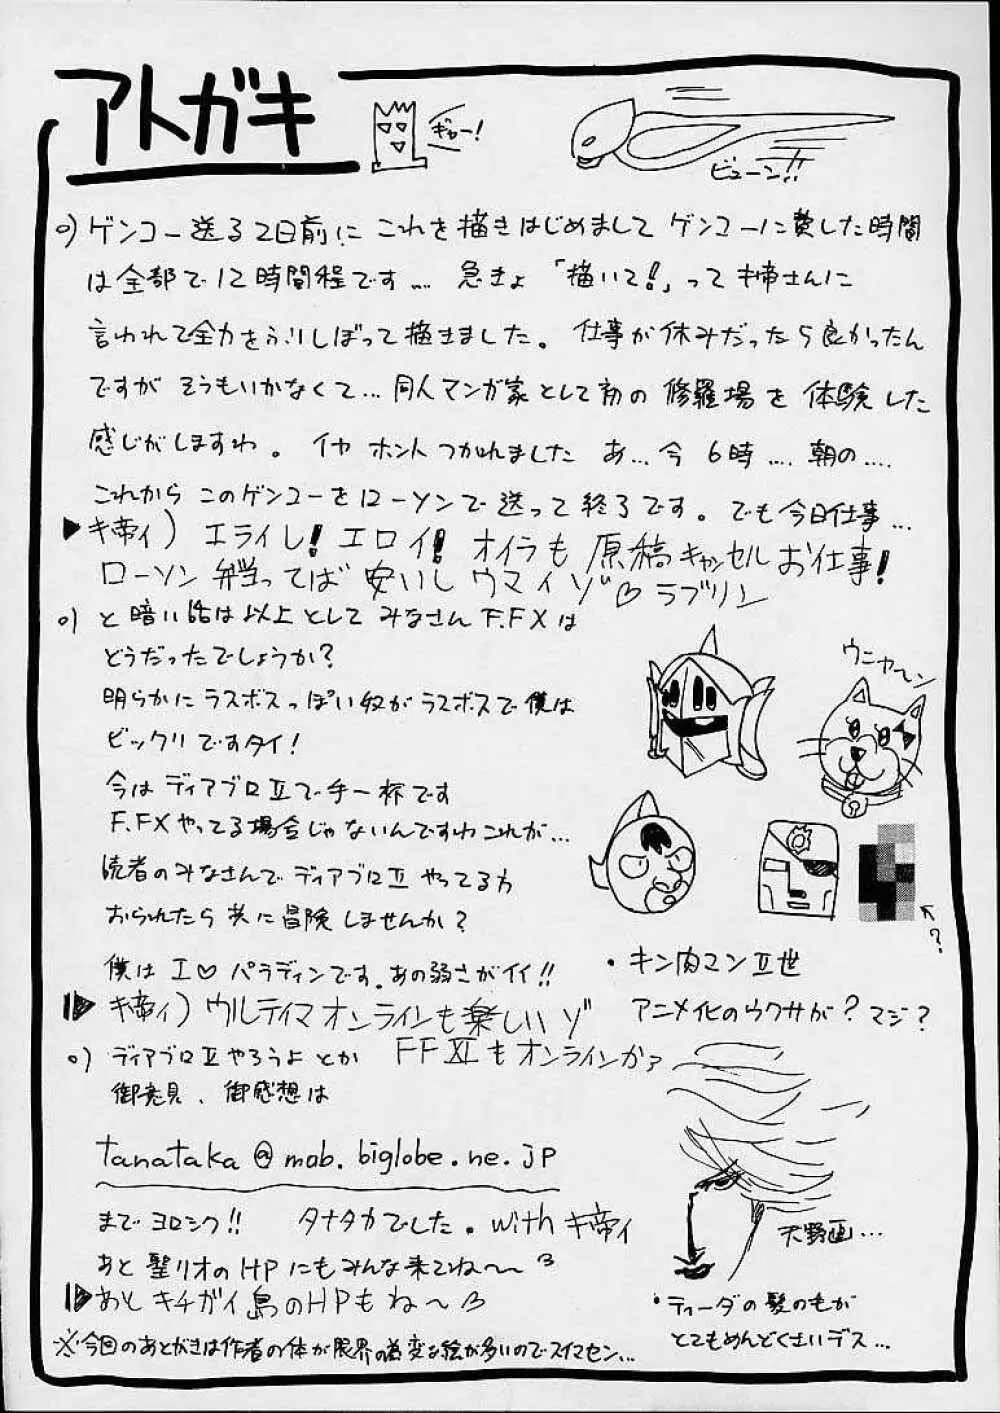 アトガキ
ギャー!
ビューン!!
○) ゲンコー送る2日前にこれを描きはじめましてゲンコーに費した時間
は全部で12時間程です… 急きょ「描いて!」ってキ帝さんに
言われて全力をふりしぼって描きました。仕事が休みだったら良かったん
ですがそうもいかなくて…同人マンガ家として初の修羅場を体験した
感じがしますわ。イヤホントつかれました あ…今6時…朝の…
これからこのゲンコーをローソンで送って終了です。でも今日仕事…
▶キ帝ィ) エライし!エロイ!オイラも原稿キャンセルお仕事!
ローソン弁当ってば安いしウマイゾ♡ラブリン
○) と暗い話は以上としてみなさんF.FXは
どうだったでしょうか?
明らかにラスボスっぽい奴がラスボスで僕は
ビックリですタイ!
今はディアブロⅡで手一杯です
F.FXやってる場合じゃないんですわこれが…
読者のみなさんでディアブロⅡやってる方
おられたら共に冒険しませんか?
僕はエ♡パラディンです。あの弱さがイイ!!
▶キ帝ィ) ウルティマオンラインも楽しいゾ
○) ディアブロⅡやろうよとか FFXIもオンラインかァ
御意見、御感想は
tanataka@mob.biglobe.ne.jp
までヨロシク!! タナタカでした。withキ帝ィ
あと聖リオのHPにもみんな来てね〜
▶あとキチガイ島のHPもね〜
※今回のあとがきは作者の体が限界の為変な絵が多いのでスイマセン…
ウニャ〜ン
?
・キン肉マンⅡ世
アニメ化のウワサが?マジ?
天野画…
・ティーダの髪の毛が
とてもめんどくさいデス…